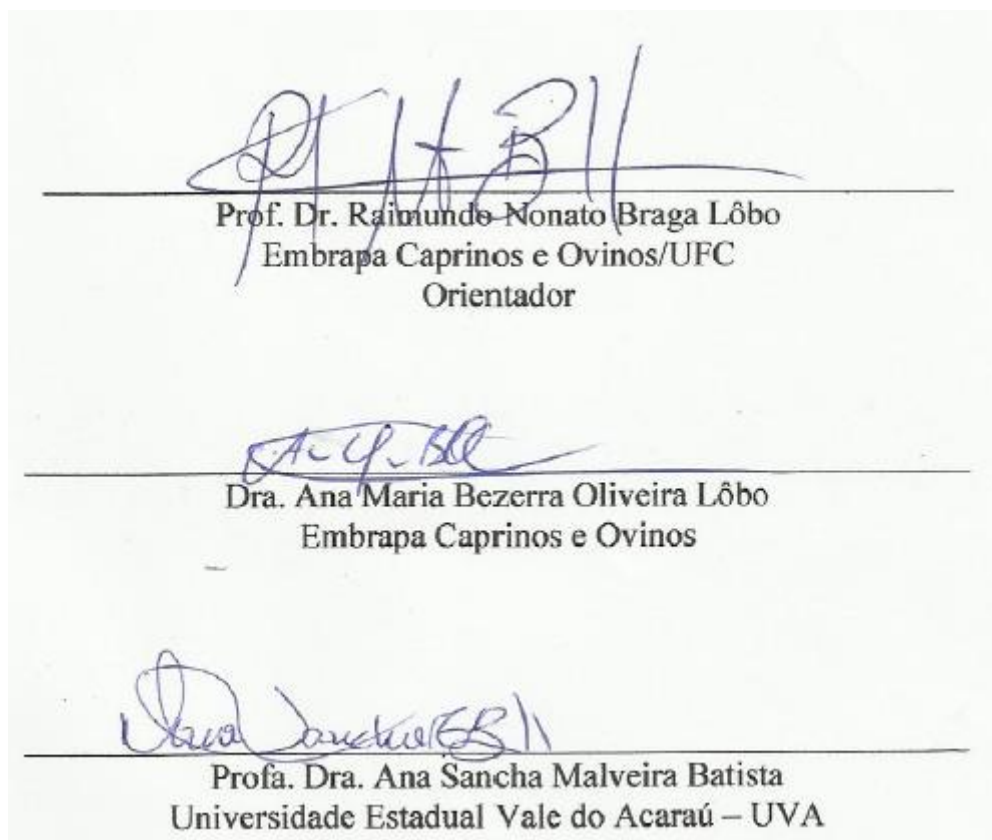 Prof. Dr. Raimundo Nonato Braga Lôbo
Embrapa Caprinos e Ovinos/UFC
Orientador
Dra. Ana Maria Bezerra Oliveira Lôbo
Embrapa Caprinos e Ovinos
Profa. Dra. Ana Sancha Malveira Batista
Universidade Estadual Vale do Acaraú – UVA